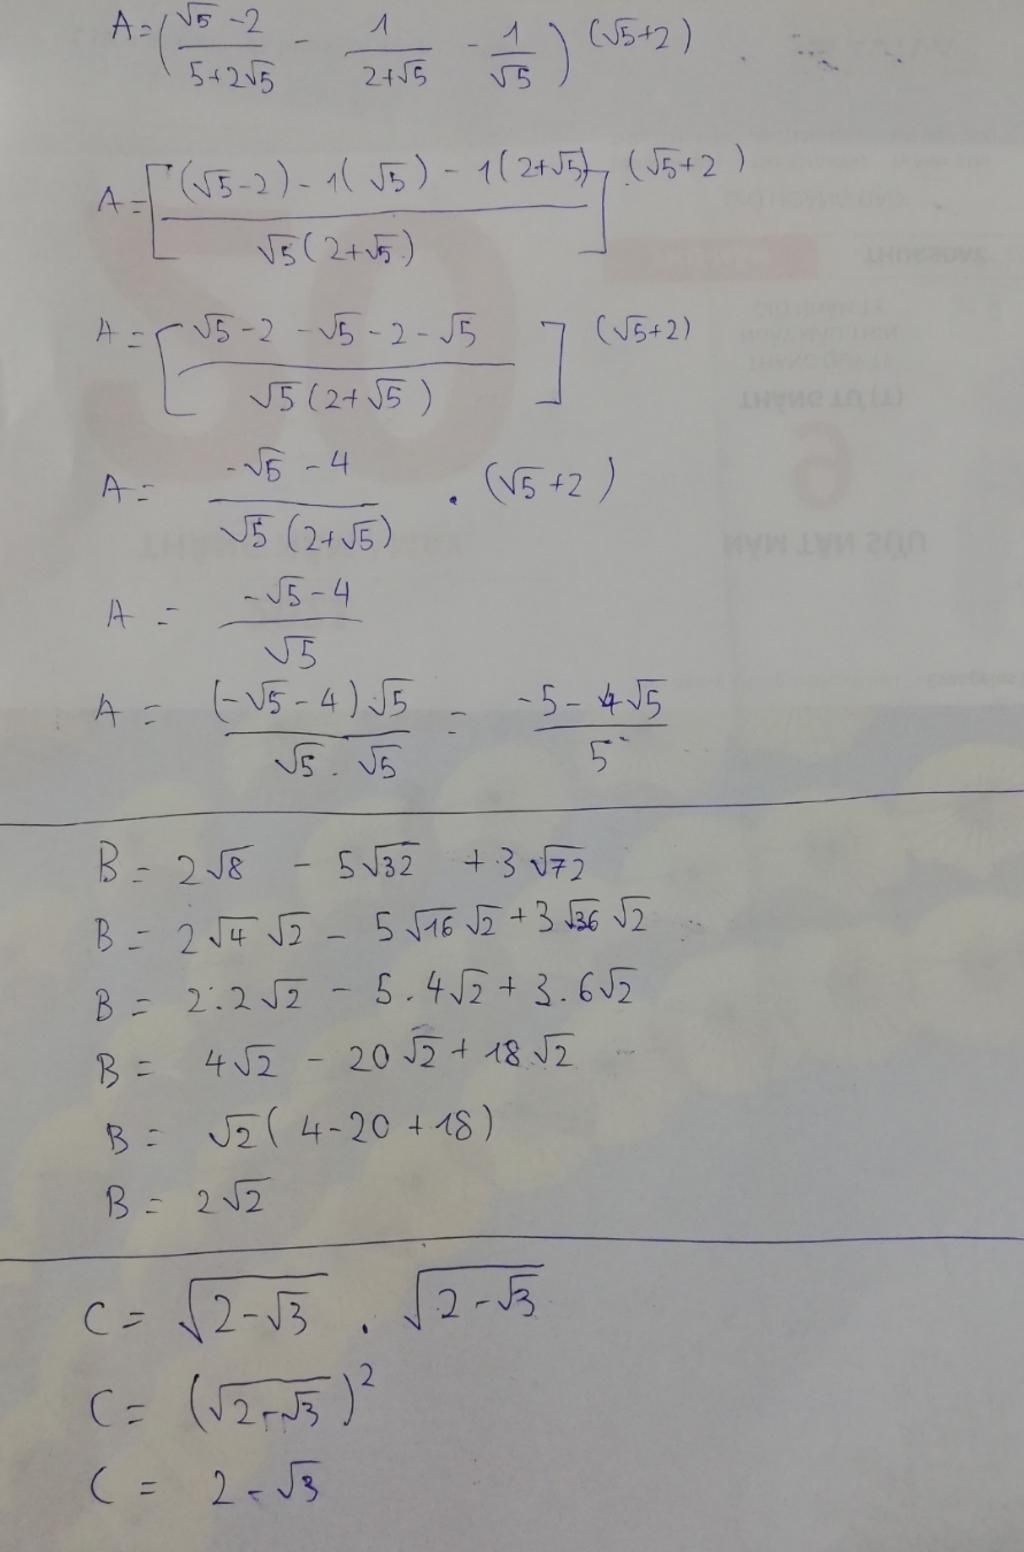 A = ( (√5 - 2)/(5+2√5) - 1/(2+√5) - 1/√5 ) (√5+2)
A = [ ((√5-2) - 1(√5) - 1(2+√5))/(√5(2+√5)) ] . (√5+2)
A = [ (√5-2 - √5 - 2 - √5)/(√5(2+√5)) ] (√5+2)
A = (-√5 - 4)/(√5(2+√5)) . (√5+2)
A = (-√5-4)/√5
A = ((-√5-4)√5)/(√5.√5) = (-5-4√5)/5
B = 2√8 - 5√32 + 3√72
B = 2√4√2 - 5√16√2 + 3√36√2
B = 2.2√2 - 5.4√2 + 3.6√2
B = 4√2 - 20√2 + 18√2
B = √2(4-20+18)
B = 2√2
C = √(2-√3) . √(2-√3)
C = (√(2-√3))²
C = 2-√3
THURSDAY
THÁNG TƯ (T)
6
NĂM TÂN SỬU
02